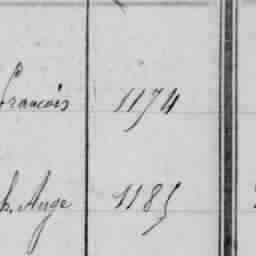 francois 1174
h. Auge 1185